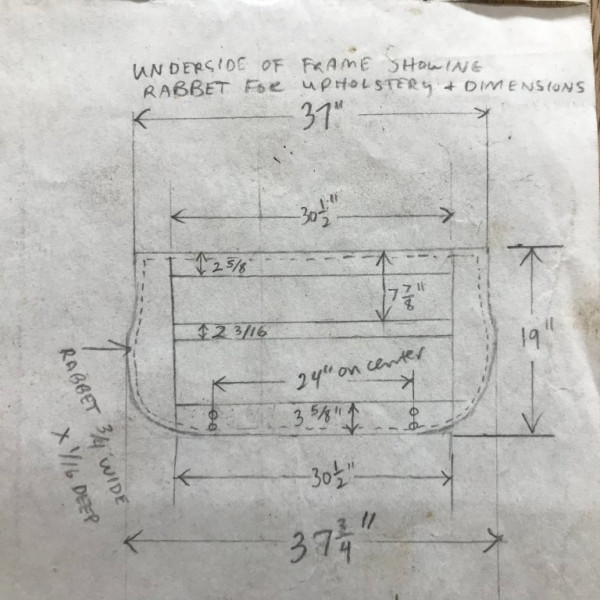 UNDERSIDE OF FRAME SHOWING
RABBET FOR UPHOLSTERY + DIMENSIONS
37"
30 1/2"
2 5/8
7 7/8"
2 3/16
19"
24" on center
3 5/8"
RABBET 3/4 WIDE
X 1/16 DEEP
30 1/2"
37 3/4"